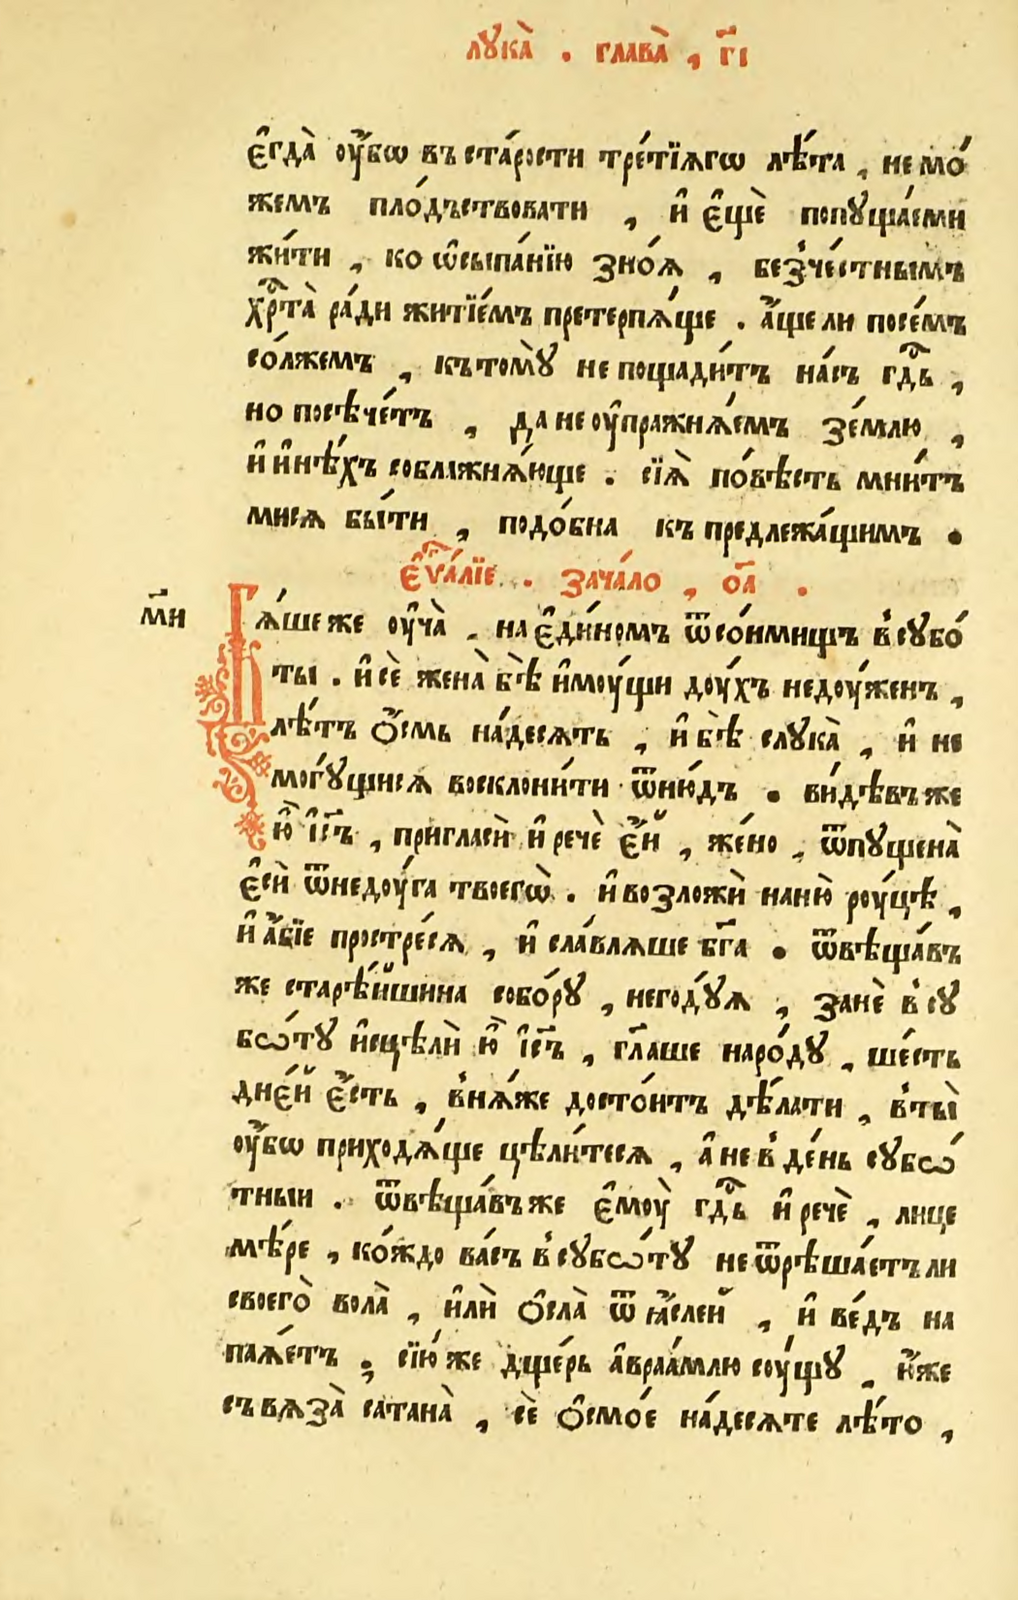 лꙋка̀ . глава̀ , г҃і
є҆гда̀ ᲂу҆́бѡ въ ста́рости тре́тїѧгѡ лѣ́та , не мо́
жемъ пло́дъствовати , и҆ є҆щѐ попꙋща́еми
жи́ти , ко ѡ҆сыпа́нїю зно́ѧ , без̾че́стнымъ
хрⷭ҇та̀ ра́ди житїе́мъ претерпѧ́ще . а҆́ще ли посе́мъ
со́лжемъ , къ томꙋ̀ не пощади́тъ на́съ гдⷭ҇ь ,
но посѣче́тъ , да не ᲂу҆пражнѧ́емъ зе́млю ,
и҆ и҆нѣ́хъ соблажнѧ́юще . сїѧ̀ по́вѣсть мни́тъ
мисѧ бы́ти , подо́бна къ предлежа́щимъ .
є҆ѵⷢ҇а́лїе . зача́ло , о҃а .
м҃и
Бѧ́ше же ᲂу҆ча̀ , на є҆ди́номъ ѿ со́нмищъ в̾ сꙋбо́
ты . и҆ сѐ жена̀ бѣ̀ и҆мᲂу́щи дᲂу́хъ недᲂу́женъ ,
лѣ́тъ ѻ҆́смь на́десѧть , и҆ бѣ̀ слꙋка̀ , и҆ не
мо́гꙋщисѧ восклони́ти ѿню́дъ . ви́дѣвъ же
ю҆̀ і҆с҃ъ , пригласѝ и҆ речѐ є҆́й , же́но , ѿпꙋщена̀
є҆сѝ ѿ недᲂу́га твоегѡ̀ . и҆ возложѝ на ню̀ рᲂу́цѣ ,
и҆ а҆́бїе простре́сѧ , и҆ сла́влѧше бг҃а . ѿвѣща́въ
же старѣ́йшина собо́рꙋ , него́дꙋѧ , занѐ в̾ сꙋ
бѡ́тꙋ и҆сцѣлѝ ю҆̀ і҆с҃ъ , гл҃аше наро́дꙋ , ше́сть
дне́й є҆́сть , в̾ нѧ́же досто́итъ дѣ́лати , в̾ ты̀
ᲂу҆́бѡ приходѧ́ще цѣли́тесѧ , а҆ не в̾ де́нь сꙋбѡ́
тныи . ѿвѣща́въ же є҆мᲂу̀ гдⷭ҇ь и҆ речѐ , лице
мѣ́ре , ко́ждо ва́съ в̾ сꙋбѡ́тꙋ не ѿрѣша́етъ ли
своего̀ вола̀ , и҆лѝ ѻ҆сла̀ ѿ ꙗ҆́слей , и҆ ве́дъ на
паѧ́етъ ; сїю́ же дще́рь а҆враа́млю сᲂу́щꙋ , ю҆́же
съвѧза̀ сатана̀ , сѐ ѻ҆смо́е на́десѧте лѣ́то ,